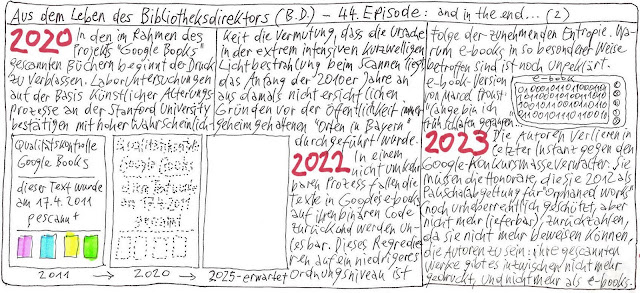 Aus dem Leben des Bibliotheksdirektors (B.D.) – 44. Episode: and in the end... (2)
2020 In den im Rahmen des
Projekts "Google Books"
gescannten Büchern beginnt der Druck
zu verblassen. Laboruntersuchungen
auf der Basis künstlicher Alterungs-
prozesse an der Stanford University
bestätigen mit hoher Wahrscheinlich-
keit die Vermutung, dass die Ursache
in der extrem intensiven kurzwelligen
Lichtbestrahlung beim Scannen liegt,
das Anfang der 2010er Jahre an
aus damals nicht ersichtlichen
Gründen vor der Öffentlichkeit immer
geheim gehaltenen "Orten in Bayern"
durchgeführt wurde.
2022 In einem
nicht umkehr-
baren Prozess fallen die
Texte in Googles e-books
auf ihren binären Code
zurück und werden un-
lesbar. Dieses Regredie-
ren auf ein niedrigeres
Ordnungsniveau ist
Folge der zunehmenden Entropie. Wa-
rum e-books in so besonderer Weise
betroffen sind ist noch ungeklärt.
e-book-Version
von Marcel Proust:
"Lange bin ich
früh schlafen gegangen"
e-book
2023 Die Autoren verlieren in
letzter Instanz gegen den
Google-Konkursmasseverwalter. Sie
müssen die Honorare, die sie 2012 als
Pauschalabgeltung für "orphaned works"
(noch urheberrechtlich geschützt, aber
nicht mehr lieferbar), zurückzahlen,
da sie nicht mehr beweisen können,
die Autoren zu sein: ihre gescannten
Werke gibt es inzwischen nicht mehr
gedruckt, und nicht mehr als e-books.
Qualitätskontrolle
Google Books
dieser Text wurde
am 17.4.2011
gescannt
Qualitätskontrolle
Google Books
dieser Text wurde
am 17.4.2011
gescannt
2011 → 2020 → 2025-erwartet